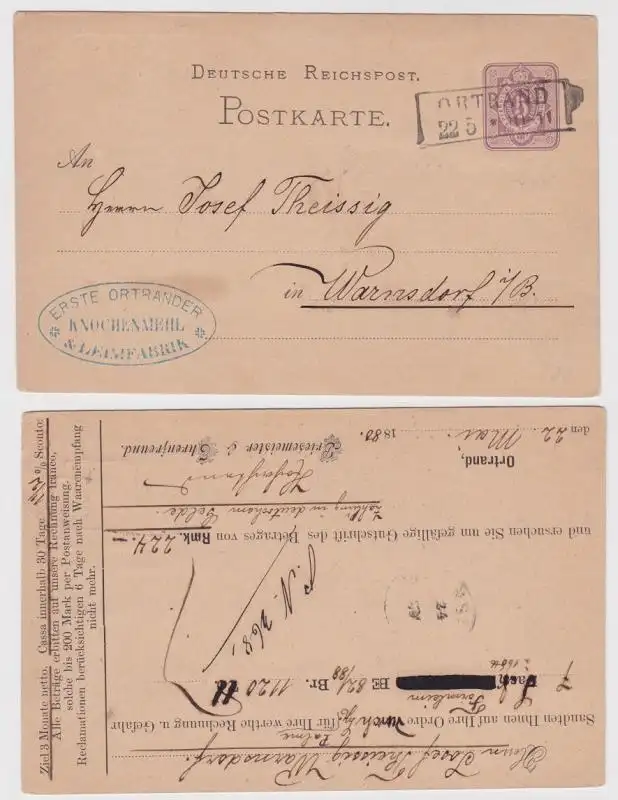 DEUTSCHE REICHSPOST.
POSTKARTE.
ORTRAND
22 5
An
Herrn Josef Theissig
in Warnsdorf i/B.
ERSTE ORTRANDER
KNOCHENMEHL
& LEIMFABRIK
Herrn Josef Theissig Warnsdorf.
Sandten Ihnen auf Ihre Ordre durch für Ihre werthe Rechnung u. Gefahr
7
Br. 1120
und ersuchen Sie um gefällige Gutschrift des Betrages von Rmk. 224.-
Zahlung in deutschem Gelde.
Hochachtend
Ortrand,
den 22. Mai. 1880.
Griesemeister & Ehrenfreund.
Ziel 3 Monate netto. Cassa innerhalb 30 Tage 1½% Sconto:
Alle Beträge erbitten auf unsere Rechnung franco,
solche bis 200 Mark per Postanweisung.
Reclamationen berücksichtigen 6 Tage nach Waarenempfang
nicht mehr.